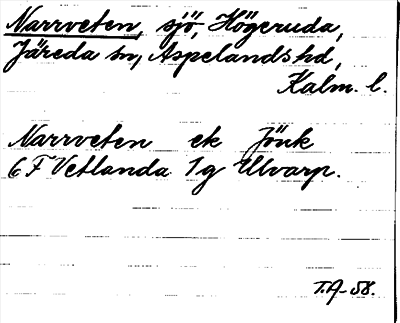 Narrveten, sjö, Högeruda,
Järeda sn, Aspelands hd,
Kalm. l.
Narrveten ek Jönk
6 F Vetlanda 1g Ulvarp.
T.A-58.